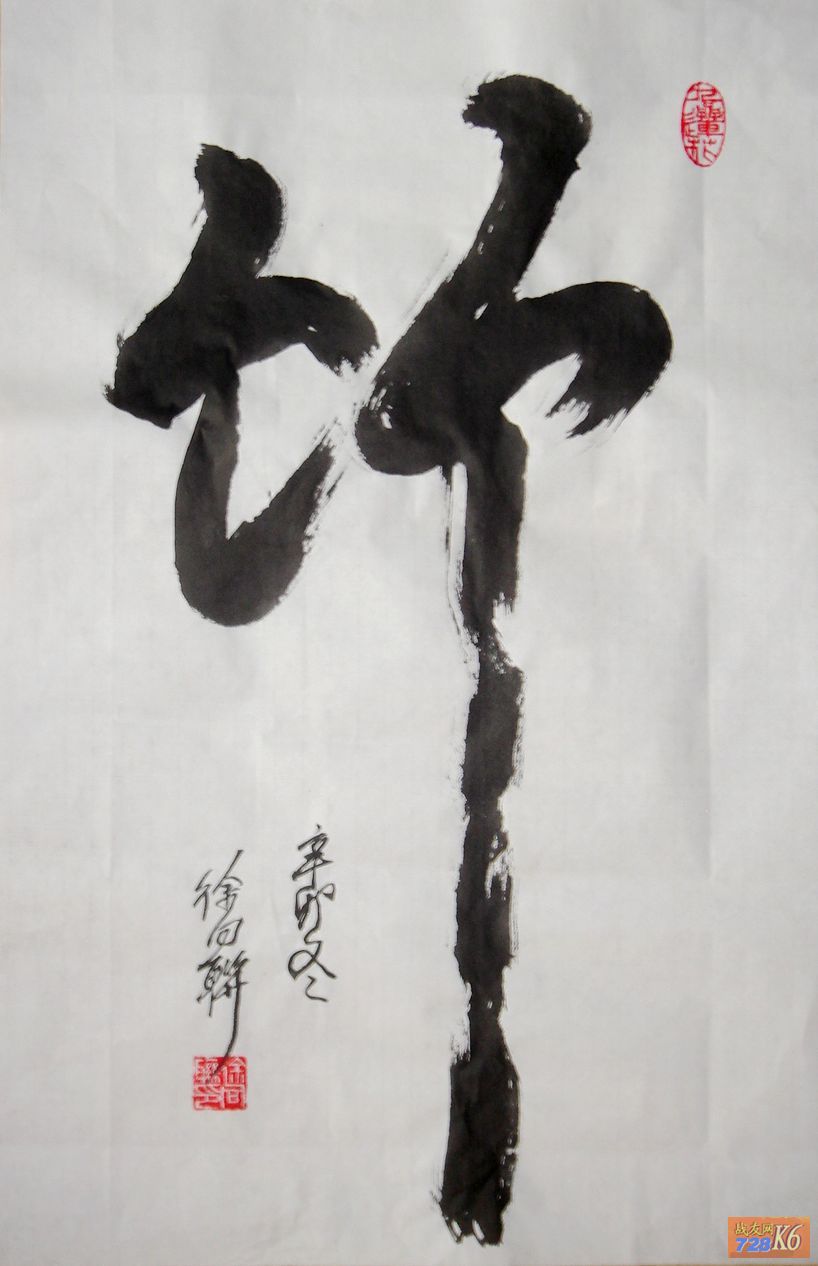 竹
辛卯冬
徐向联
战友网
728 K6